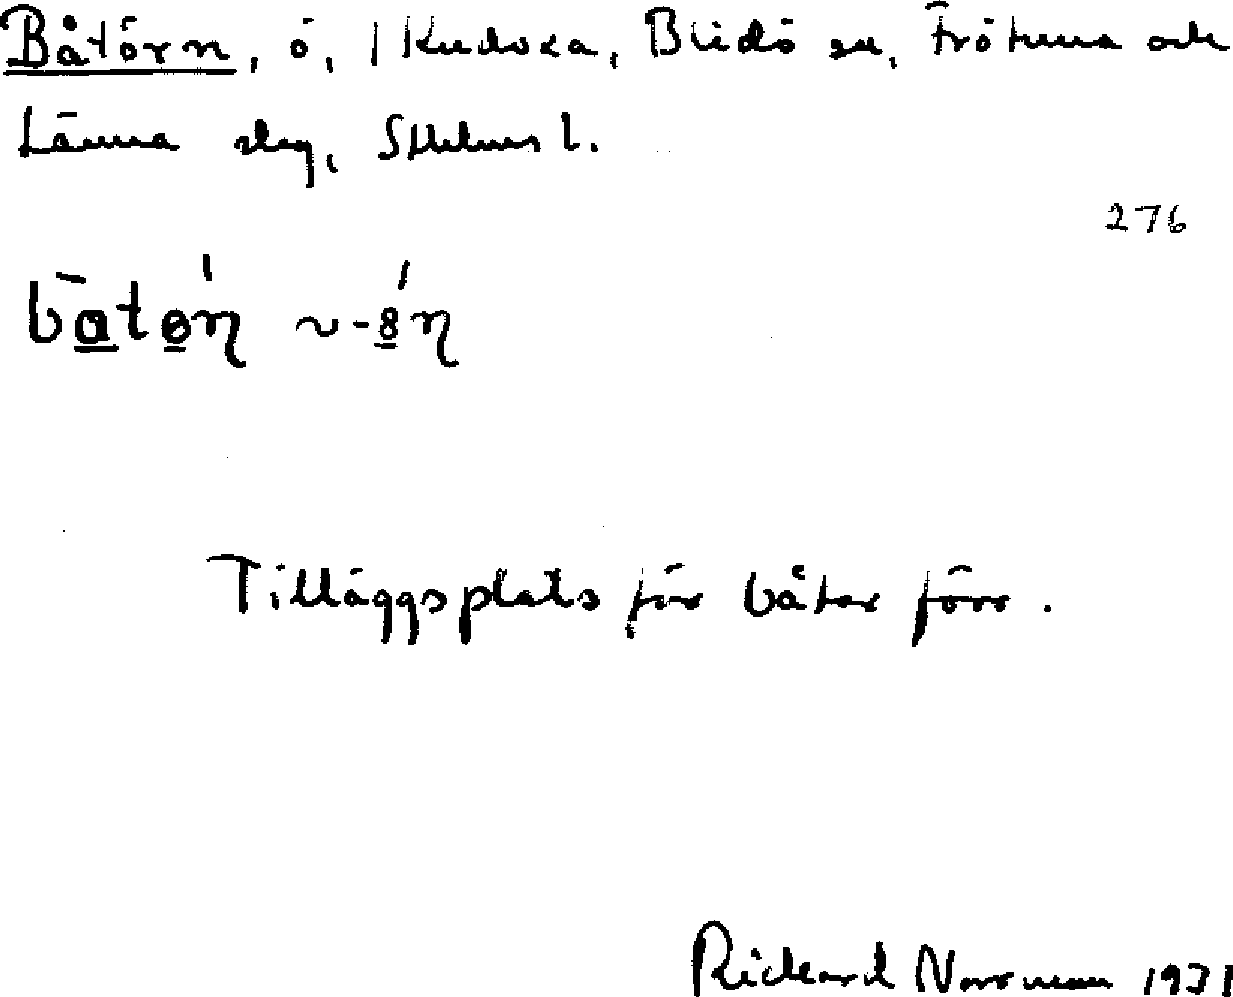 Båtörn, ö, 1 Kudoxa, Blidö sn, Frötuna och
Länna slg, Sthlms l.
276
Tilläggsplats för båtar förr.
Rickard Norrman 1931